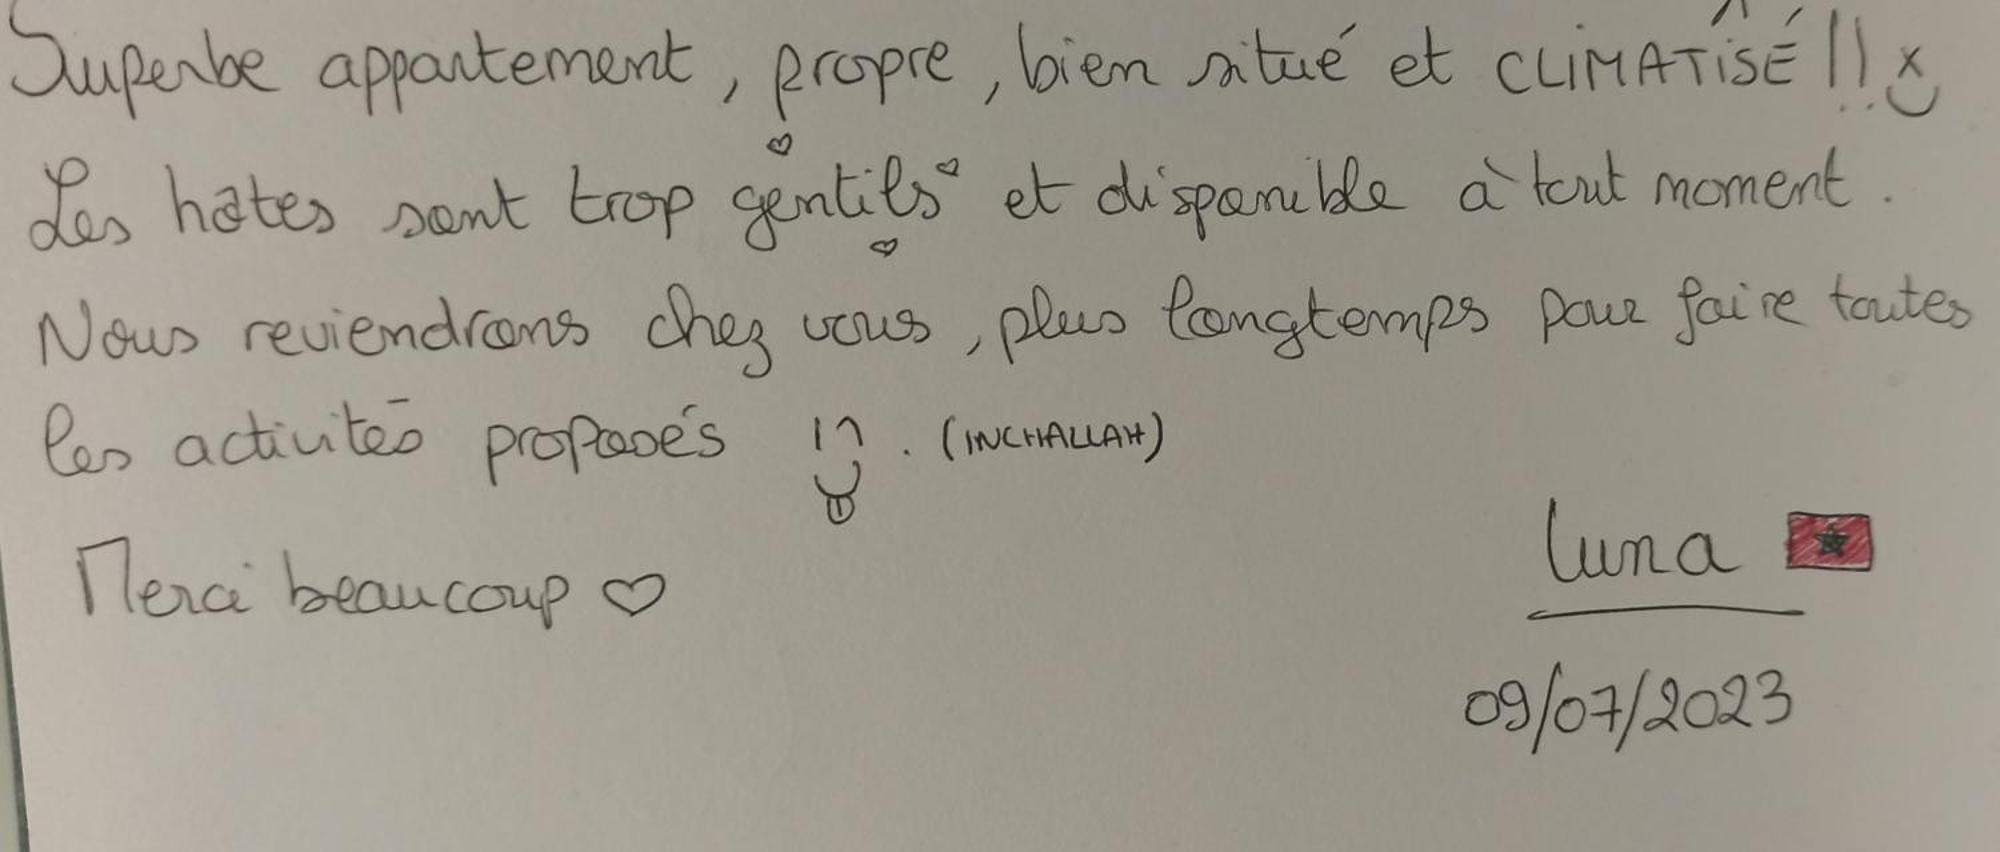 Superbe appartement, propre, bien situé et CLIMATISÉ!!
Les hôtes sont trop gentils et disponible à tout moment.
Nous reviendrons chez vous, plus longtemps pour faire toutes
les activités proposés . (INCHALLAH)
Merci beaucoup ♡
Luna
09/07/2023